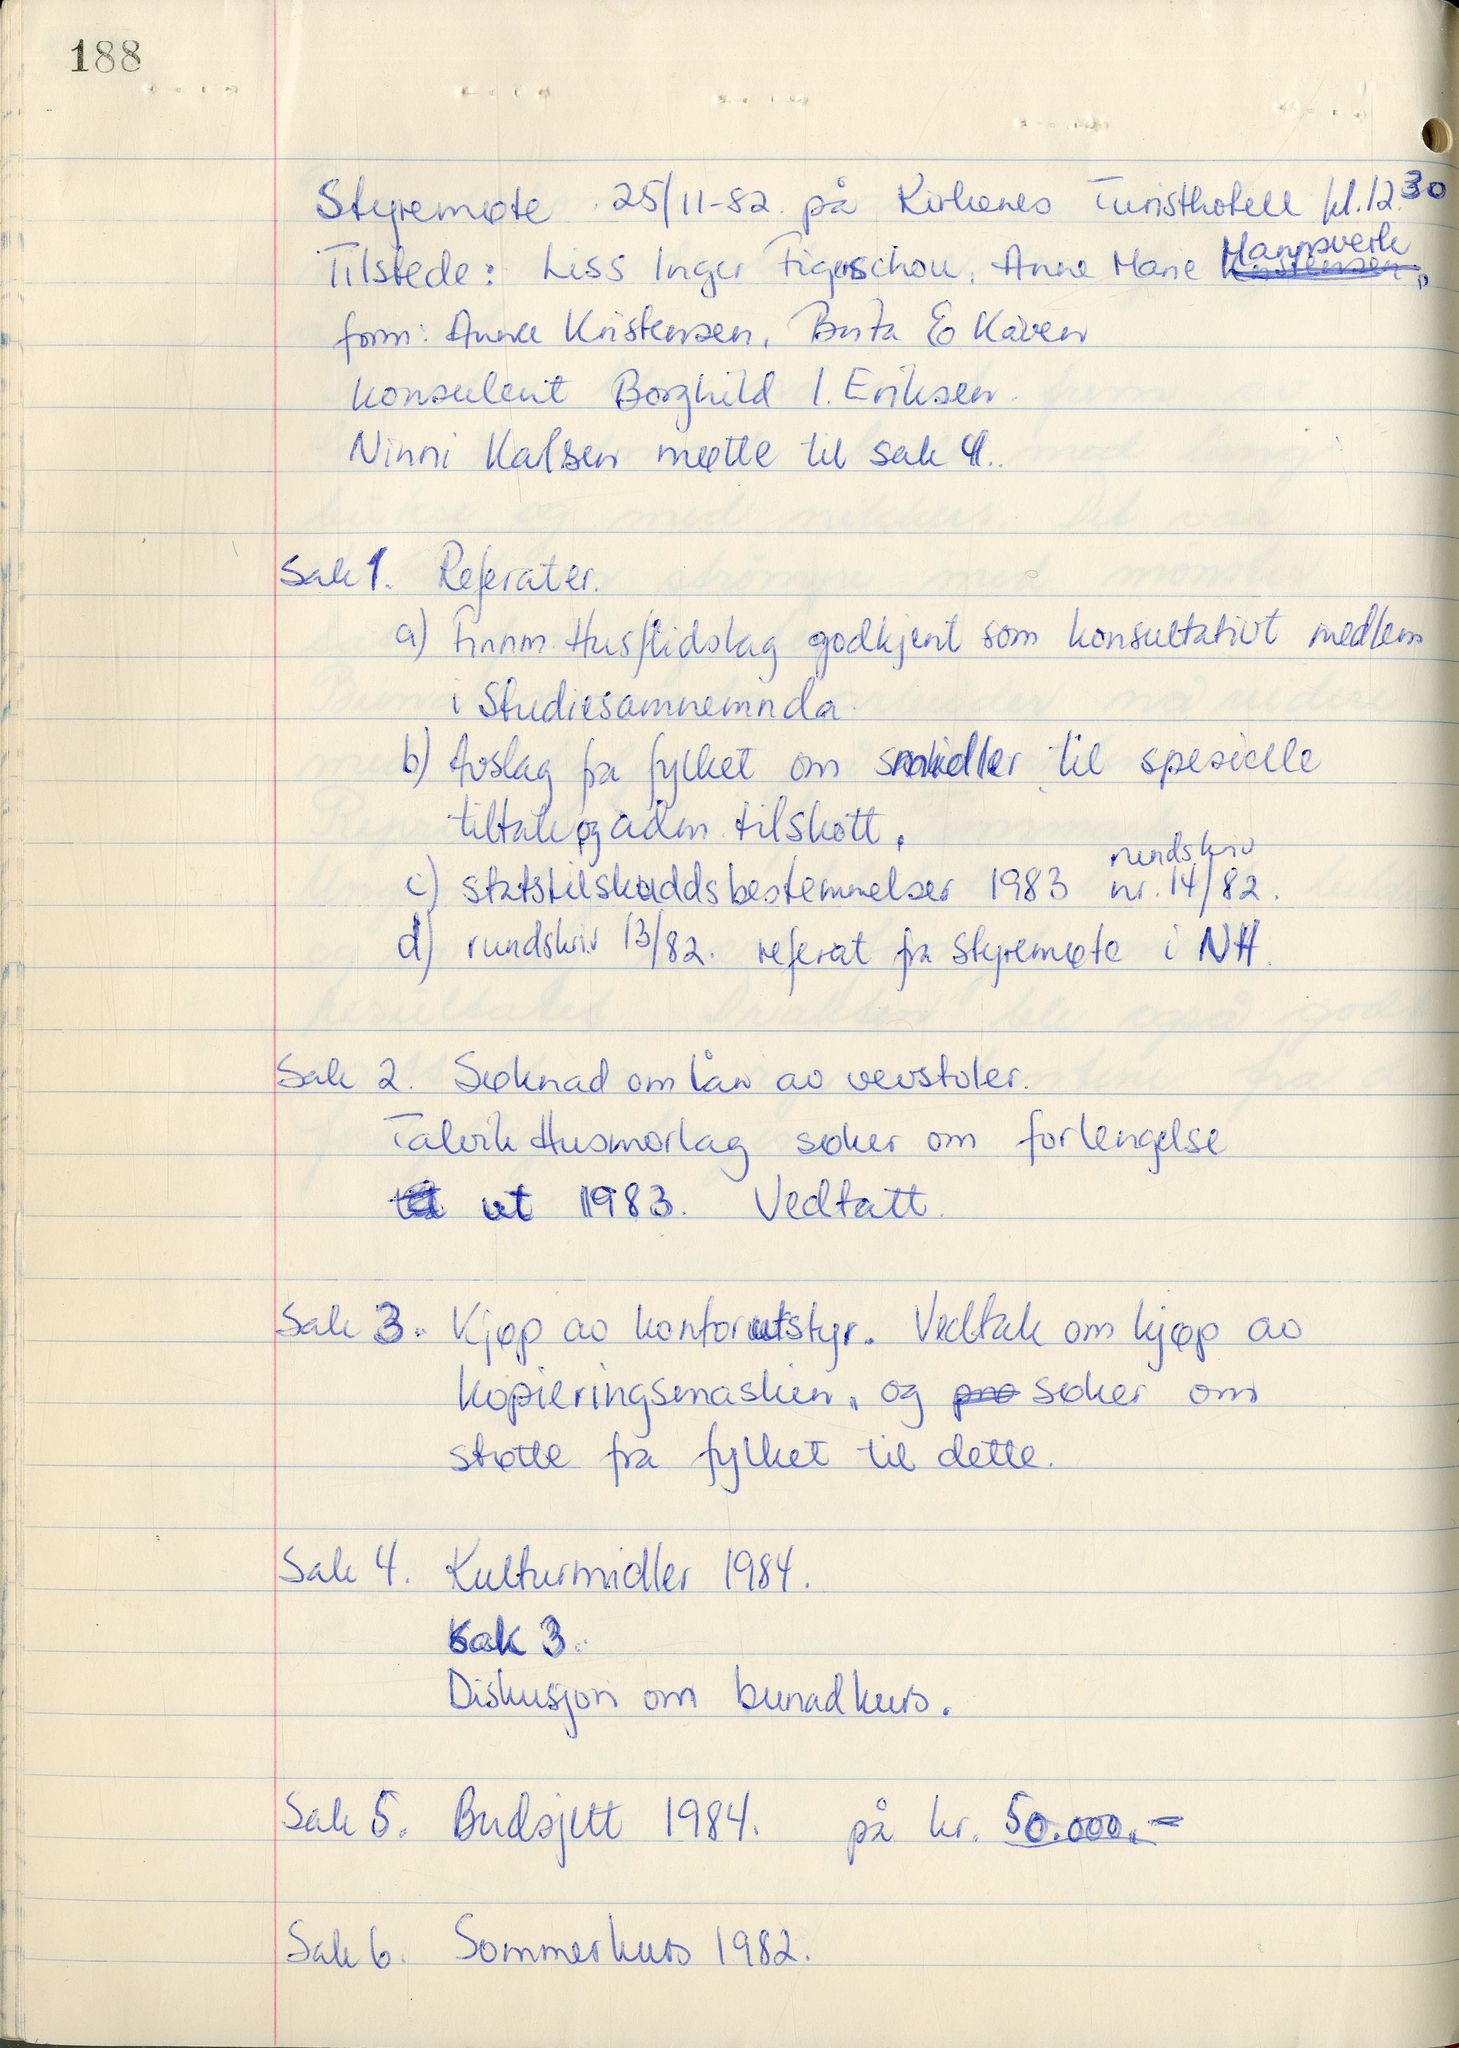 188
Styremøte 25/11-82 på Kirkenes Turisthotell kl. 12.30
Tilstede: Liss Inger Figenschou, Anne Marie Mannsverk,
form: Anna Kristensen, Berta E Kaven
konsulent Borghild I. Eriksen.
Ninni Karlsen møtte til sak 4.
Sak 1. Referater.
a) Finnm. Husflidslag godkjent som konsultativt medlem
i Studiesamnemnda
b) Avslag fra fylket om midler til spesielle
tiltak og adm tilskott.
c) statstilskuddsbestemmelser 1983 rundskriv nr. 14/82.
d) rundskriv 13/82. referat fra styremøte i NH.
Sak 2. Søknad om lån av vevstoler.
Talvik Husmorlag søker om forlengelse
ut 1983. Vedtatt.
Sak 3. Kjøp av kontorutstyr. Vedtak om kjøp av
kopieringsmaskin, og søker om
støtte fra fylket til dette.
Sak 4. Kulturmidler 1984.
Sak 3.
Diskusjon om bunadkurs.
Sak 5. Budsjett 1984. på kr. 50.000.-
Sak 6. Sommerkurs 1982.